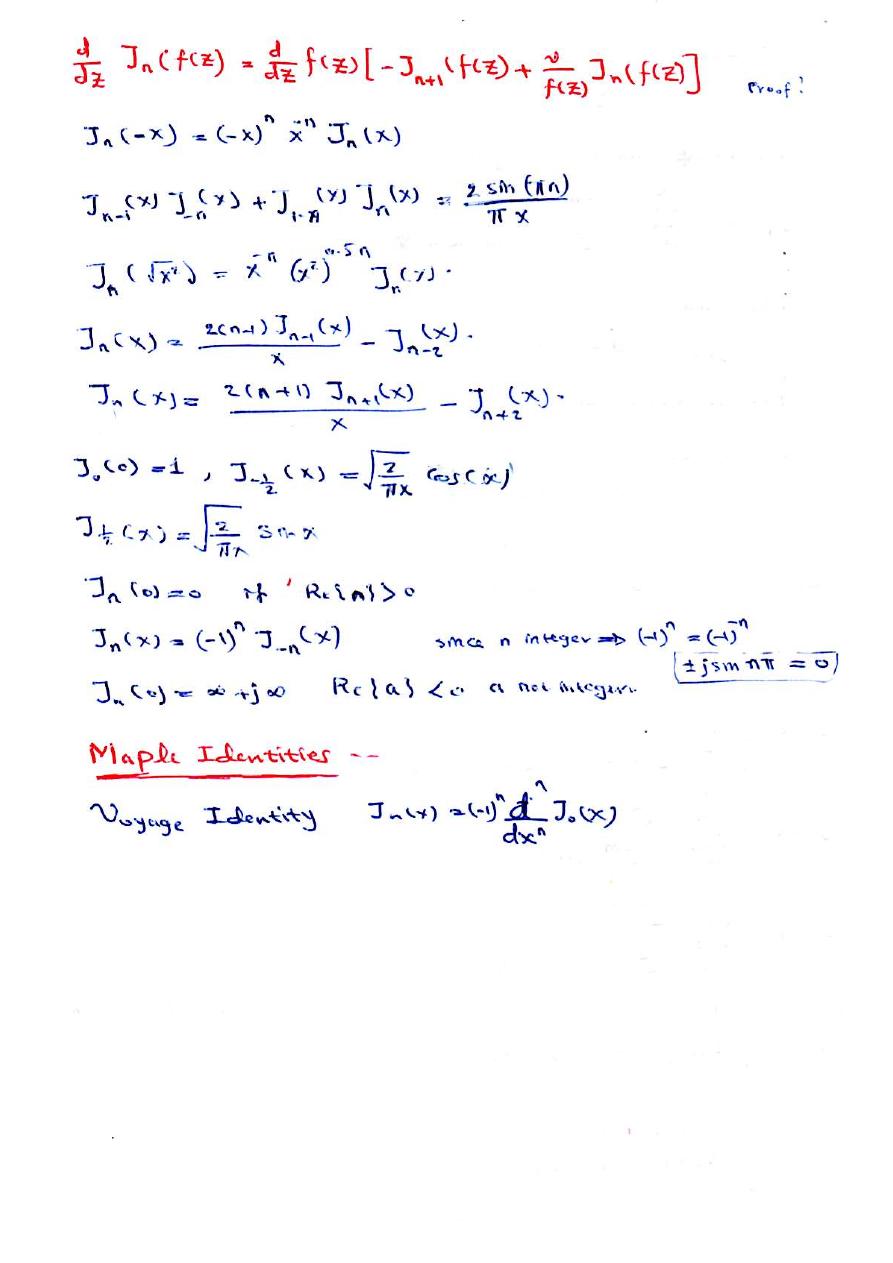 d/dz Jn(f(z) = d/dz f(z) [ - Jn+1(f(z) + ν/f(z) Jn(f(z)] Proof!
Jn(-x) = (-x)^n x^-n Jn(x)
Jn-1(x) J-n(x) + J1-n(x) Jn(x) = 2 sin(πn) / πx
Jn(√x²) = x^-n (x²)^0.5n Jn(x).
Jn(x) = 2(n-1) Jn-1(x) / x - Jn-2(x).
Jn(x) = 2(n+1) Jn+1(x) / x - Jn+2(x).
J0(0) = 1 , J-1/2(x) = √(2/πx) cos(x)
J1/2(x) = √(2/πx) sin x
Jn(0) = 0 if Re{n} > 0
Jn(x) = (-1)^n J-n(x) since n integer ⇒ (-1)^n = (-1)^-n
± j sin nπ = 0
Jn(0) = ∞ + j∞ Re{a} < 0 a not integer.
Maple Identities --
Voyage Identity Jn(x) = (-1)^n d^n/dx^n J0(x)